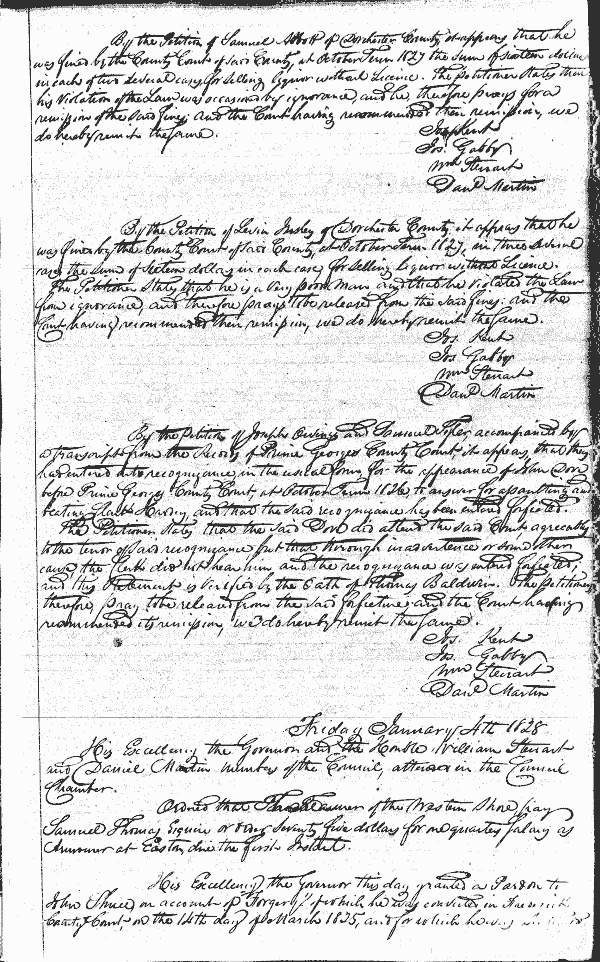 By the Petition of Samuel Abbott of Dorchester County it appears that he
was fined by the County Court of said County, at October Term 1827 the sum of sixteen dollars
in each of two several cases for selling liquor without Licence. The Petitioner states that
his violation of the Law was occasioned by ignorance, and he therefore prays for a
remission of the said fines; and the Court having recommended their remission, we
do hereby remit the same.
Jos Kent
Jos. Gabby
Wm Steuart
Danl Martin
By the Petition of Levin Insley of Dorchester County, it appears that he
was fined by the County Court of said County, at October Term 1827, in three several
cases the sum of sixteen dollars in each case, for selling Liquor without Licence.
The Petitioner states that he is a very poor man and that he violated the Law
from ignorance, and therefore prays to be released from the said fines: and the
Court having recommended their remission, we do hereby remit the same.
Jos Kent
Jos Gabby
Wm Steuart
Danl Martin
By the Petition of Joseph Owings and Samuel accompanied by
a transcript from the Records of Prince Georges County Court, it appears, that they
had entered into recognizance in the usual form, for the appearance of John Dove
before Prince Georges County Court, at October Term 1826, to answer for assaulting and
beating and that the said recognizance has been entered forfeited.
The Petitioners states, that the said Dove did attend the said Court, agreeably
to the tenor of said recognizance but that through inadvertence or some other
cause, the Clerk did not hear him and the recognizance was entered forfeited;
and this statement is verified by the Oath of Thomas Baldwin. The petitioners
therefore, pray to be released from the said forfeiture; and the Court having
recommended its remission, we do hereby remit the same.
Jos. Kent
Jos. Gabby
Wm Steuart
Danl Martin
Friday January 4th 1828
His Excellency the Governor and the Honble William Steuart
and Daniel Martin members of the Council, attended in the Council
Chamber.
Ordered that the Treasurer of the Western Shore pay
Samuel Thomas Esquire or order Seventy five dollars for one quarters salary as
Armourer at Easton, due the first Instant.
His Excellency the Governor this day granted a Pardon to
John on account of Forgery of which he was convicted in Frederick
County Court, on the 14th day of March 1825, and for which he was